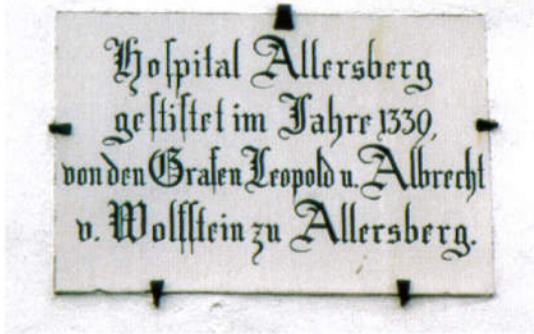 Hospital Allersberg
gestiftet im Jahre 1339,
von den Grafen Leopold u. Albrecht
v. Wolfstein zu Allersberg.